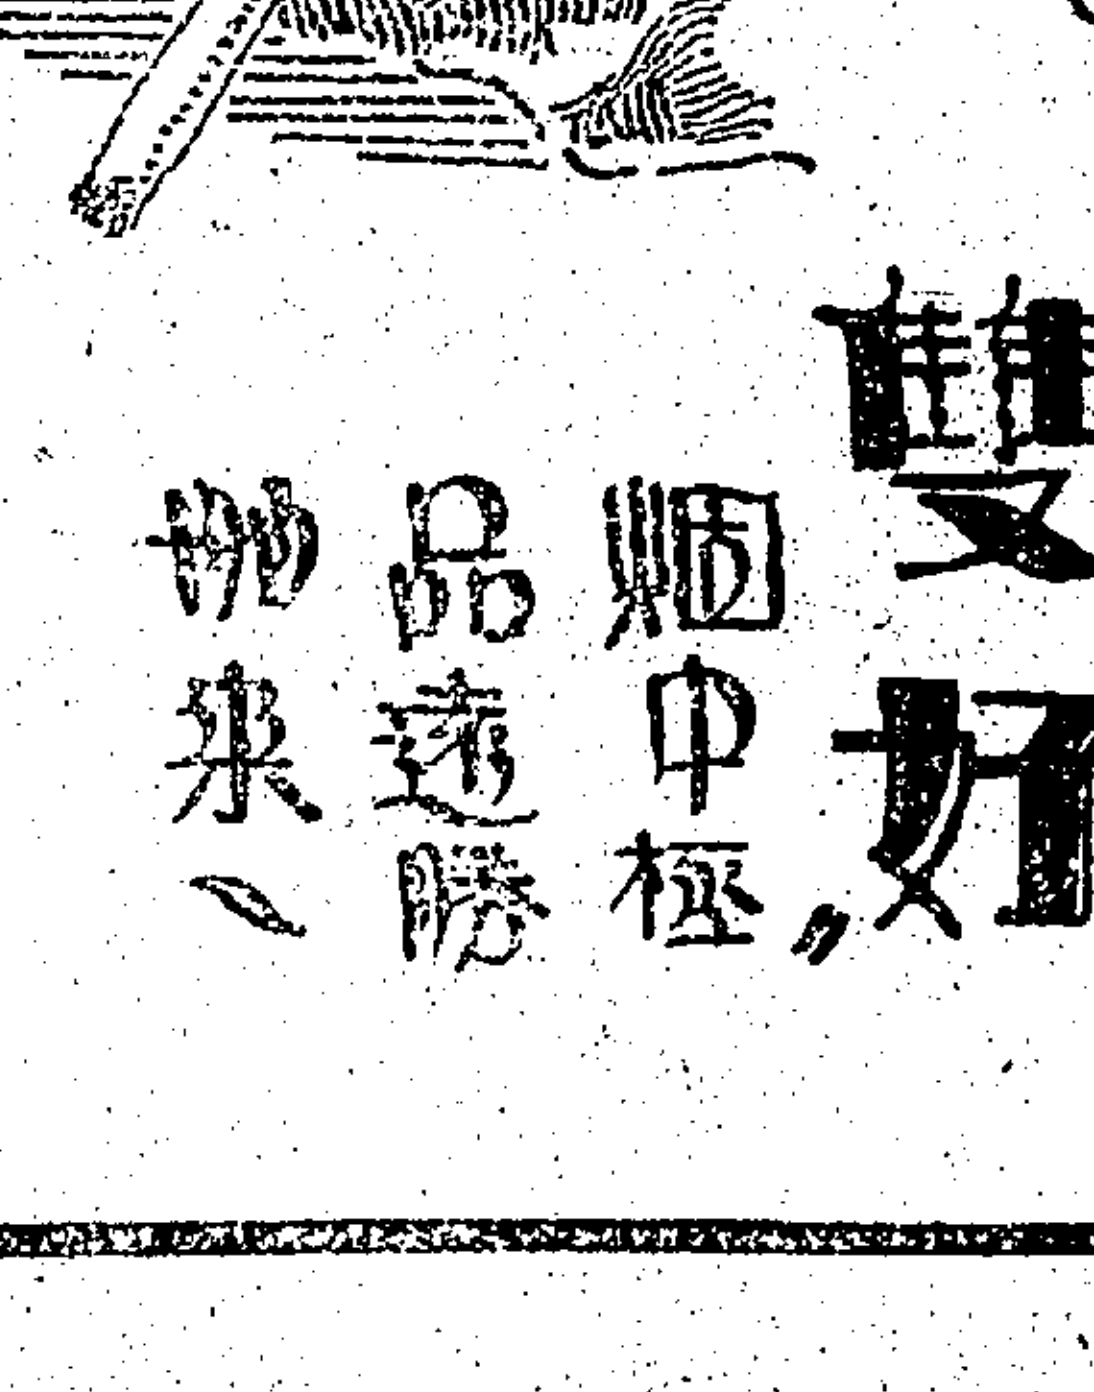 雙好
烟中極
品遠勝
舶來